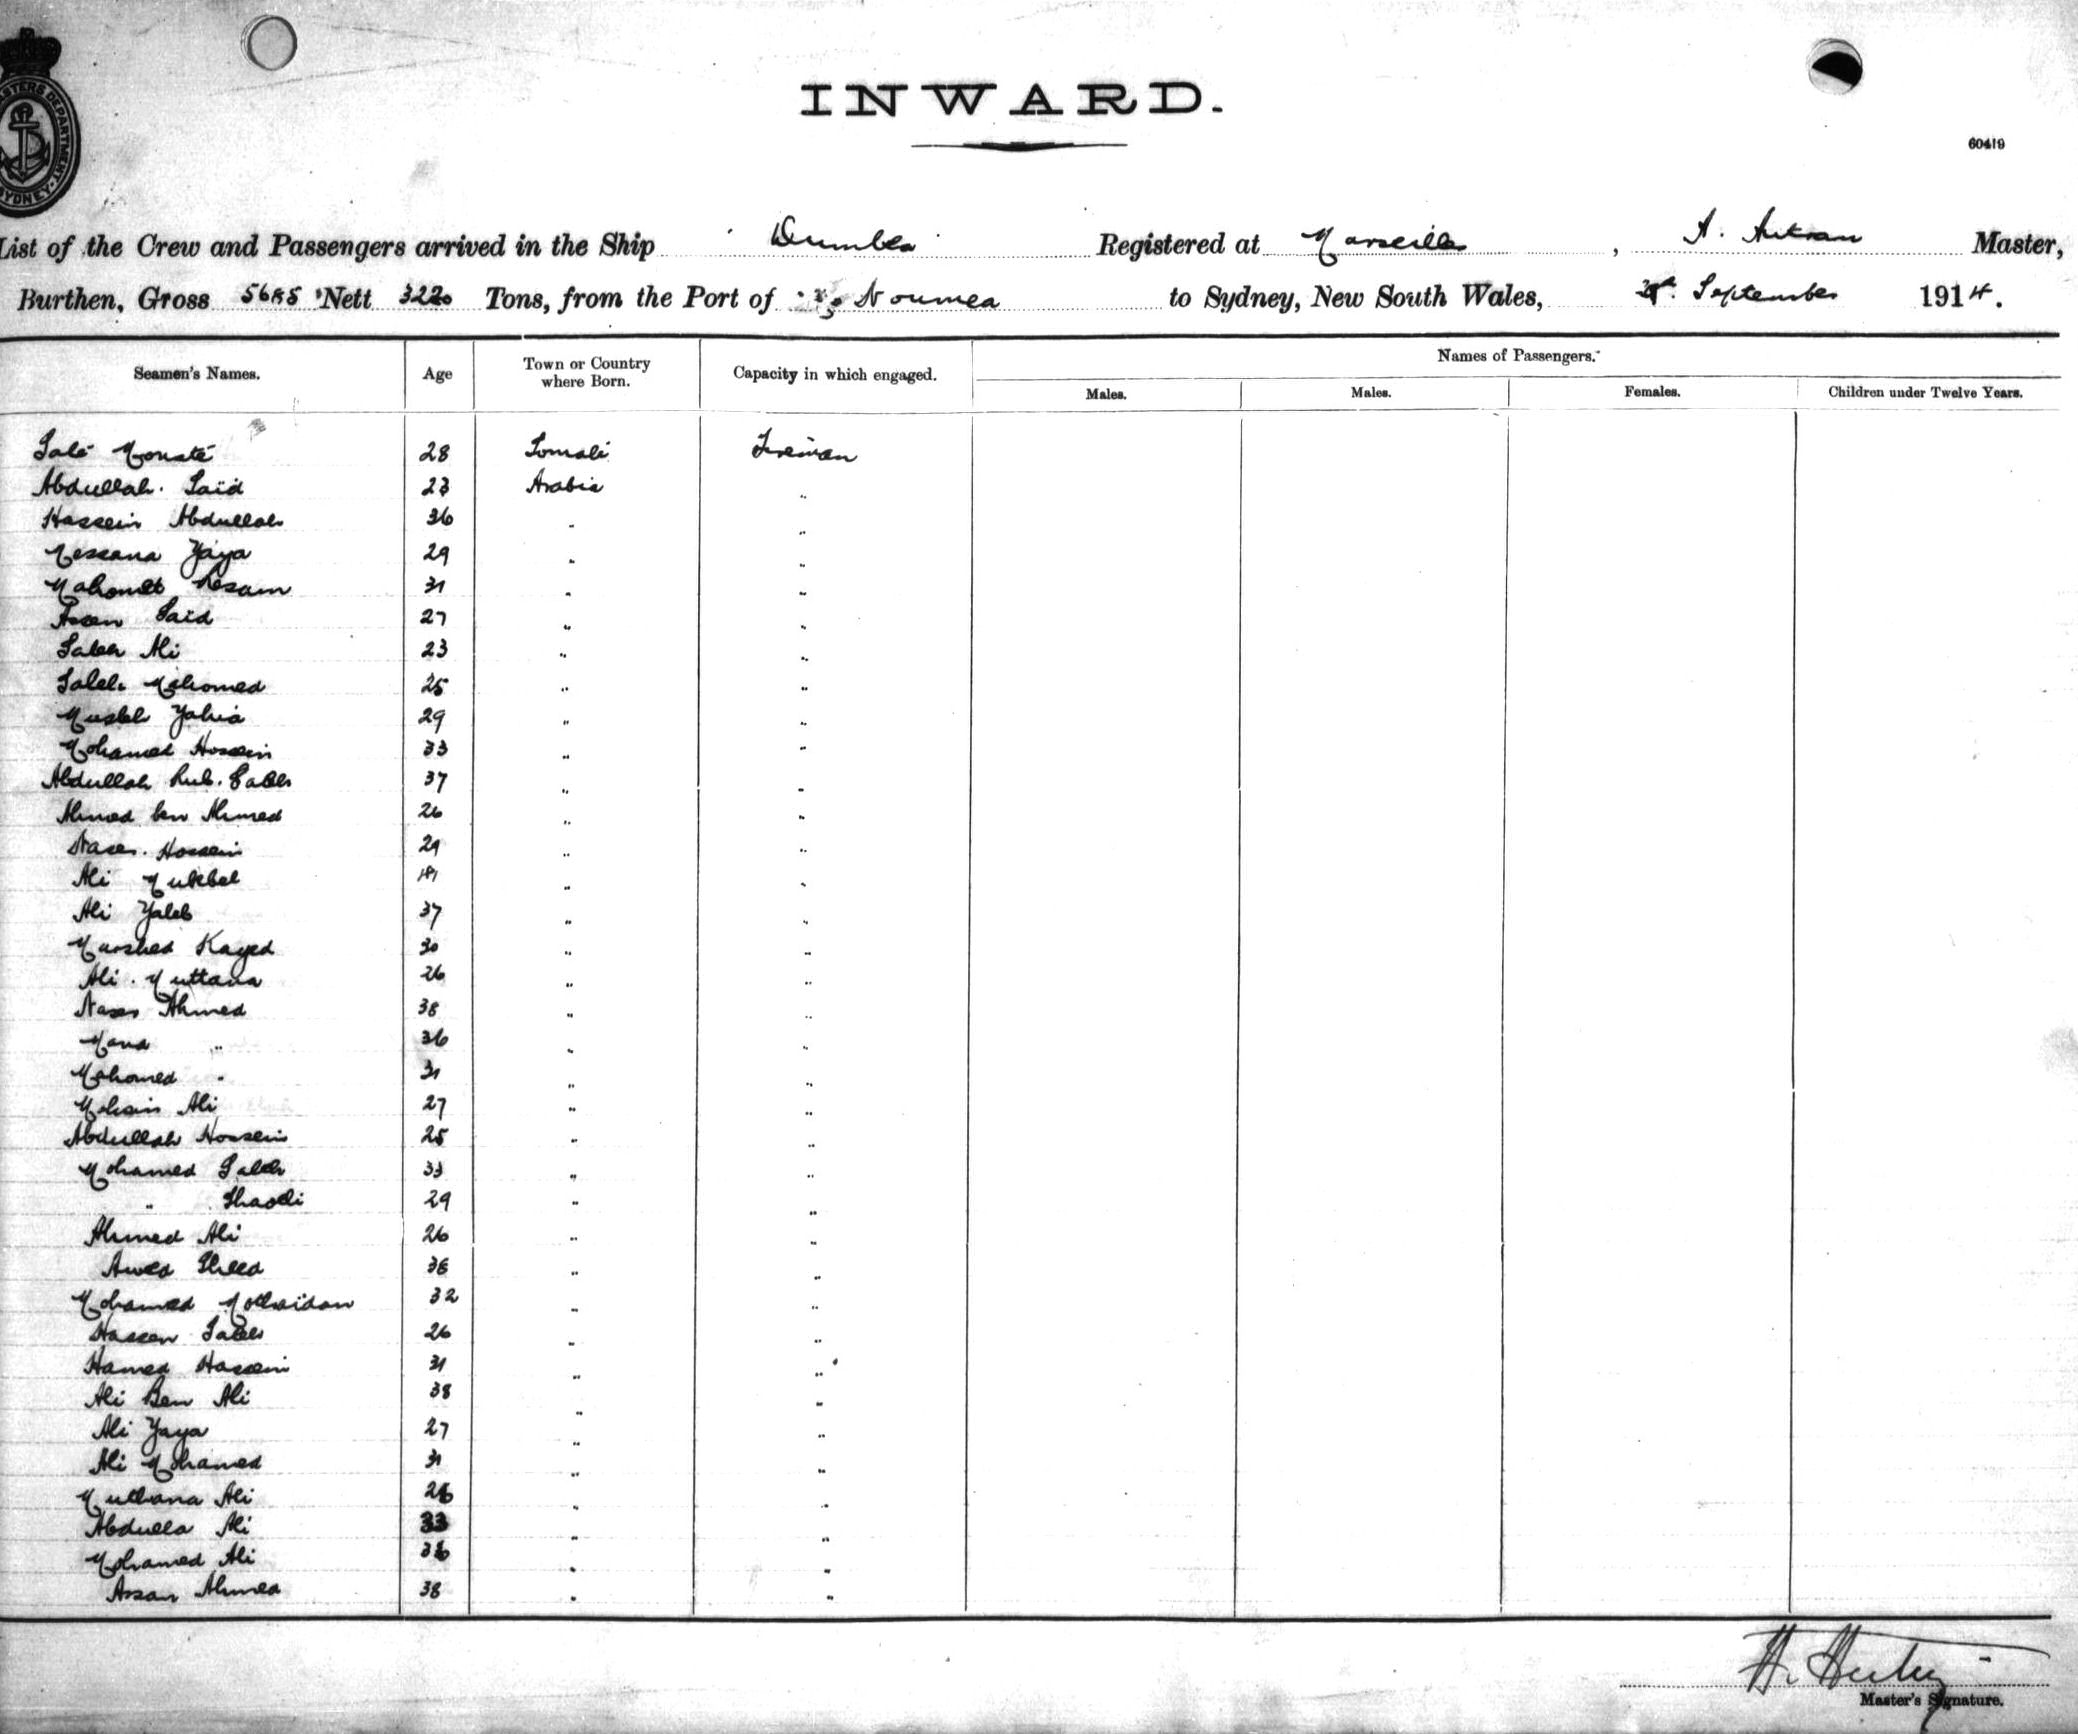 INWARD.
60419
MASTERS DEPARTMENT SYDNEY
List of the Crew and Passengers arrived in the Ship Dumbea Registered at Marseilles, A. Master,
Burthen, Gross Nett 3220 Tons, from the Port of Noumea to Sydney, New South Wales, September 1914.
Seamen's Names. Age Town or Country where Born. Capacity in which engaged. Names of Passengers.
Males. Males. Females. Children under Twelve Years.
Salé 28 Somali Fireman
Abdullah. Saïd 23 Arabia "
Hassein Abdullah 36 " "
Messana Yaya 29 " "
Mahomet 31 " "
Assen Saïd 27 " "
Saleh Ali 23 " "
Saleh Mohomed 25 " "
Musleh Yahia 29 " "
Mohamed Hossein 33 " "
Abdullah Saleh 37 " "
Ahmed ben Ahmed 26 " "
Naser. Hossein 29 " "
Ali Mukbel " "
Ali Yaleb 37 " "
Murshed Kayed 30 " "
Ali. Muttana 26 " "
Naser Ahmed 38 " "
Mana " 36 " "
Mohomed " 31 " "
Mohsin Ali 27 " "
Abdullah Hossein 25 " "
Mohamed Saleh 33 " "
" 29 " "
Ahmed Ali 26 " "
Awed 36 " "
Mohamed 32 " "
Hassen Saleh 26 " "
Hamed Hassein 31 " "
Ali Ben Ali 38 " "
Ali Yaya 27 " "
Ali Mohamed 31 " "
Ali " "
Abdulla Ali 33 " "
Mohamed Ali 36 " "
Assan Ahmed 38 " "
Master's Signature.